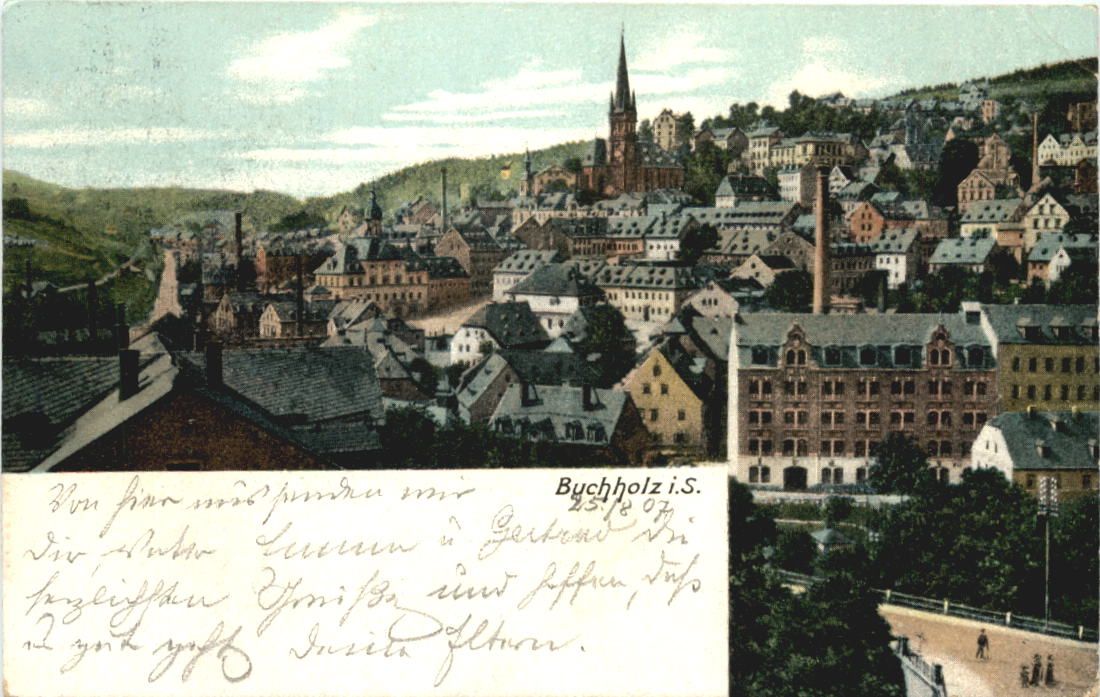 Buchholz i. S.
25./8 07
Von hier aus senden wir
Dir, Vater u. Gertrud die
herzlichsten Grüße und hoffen, daß
es gut geht Deine Eltern.